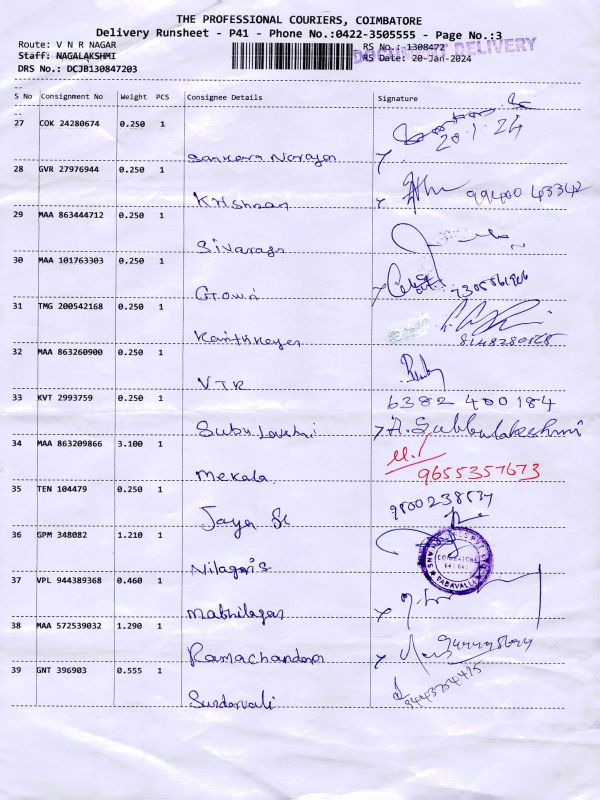 THE PROFESSIONAL COURIERS, COIMBATORE
Delivery Runsheet - P41 - Phone No.:0422-3505555 - Page No.:3
Route: V N R NAGAR
RS No.: 1308472
DOCUMENT DELIVERY
Staff: NAGALAKSHMI
RS Date: 20-Jan-2024
DRS No.: DCJB130847203
S No Consignment No Weight PCS Consignee Details Signature
27 COK 24280674 0.250 1
20.1.24
Sankara Narayan
28 GVR 27976944 0.250 1
Krishnan
99400 43342
29 MAA 863444712 0.250 1
Sivaraga
30 MAA 101763303 0.250 1
Gowri
31 TMG 200542168 0.250 1
Karthikeyan
32 MAA 863260900 0.250 1
VTR
33 KVT 2993759 0.250 1
6382 400 184
Subu Laxshmi
A. Subbulakshmi
34 MAA 863209866 3.100 1
Mekala
9655357673
35 TEN 104479 0.250 1
Jaya Sr
36 GPM 348082 1.210 1
Nilagiris
COIMBATORE
VADAVALLI
37 VPL 944389368 0.460 1
Mathilagan
38 MAA 572539032 1.290 1
Ramachandran
39 GNT 396903 0.555 1
Sundarvali